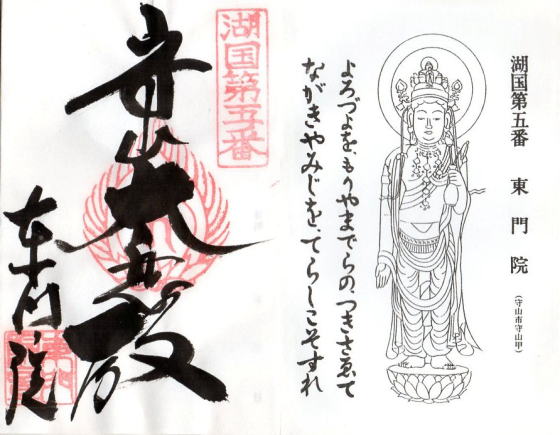 湖国第五番 東門院
(守山市守山甲)
よろづよを、もりやまでらの、つきさゑて
ながきやみじを、てらしこそすれ
湖国第五番
守山大悲殿
東門院